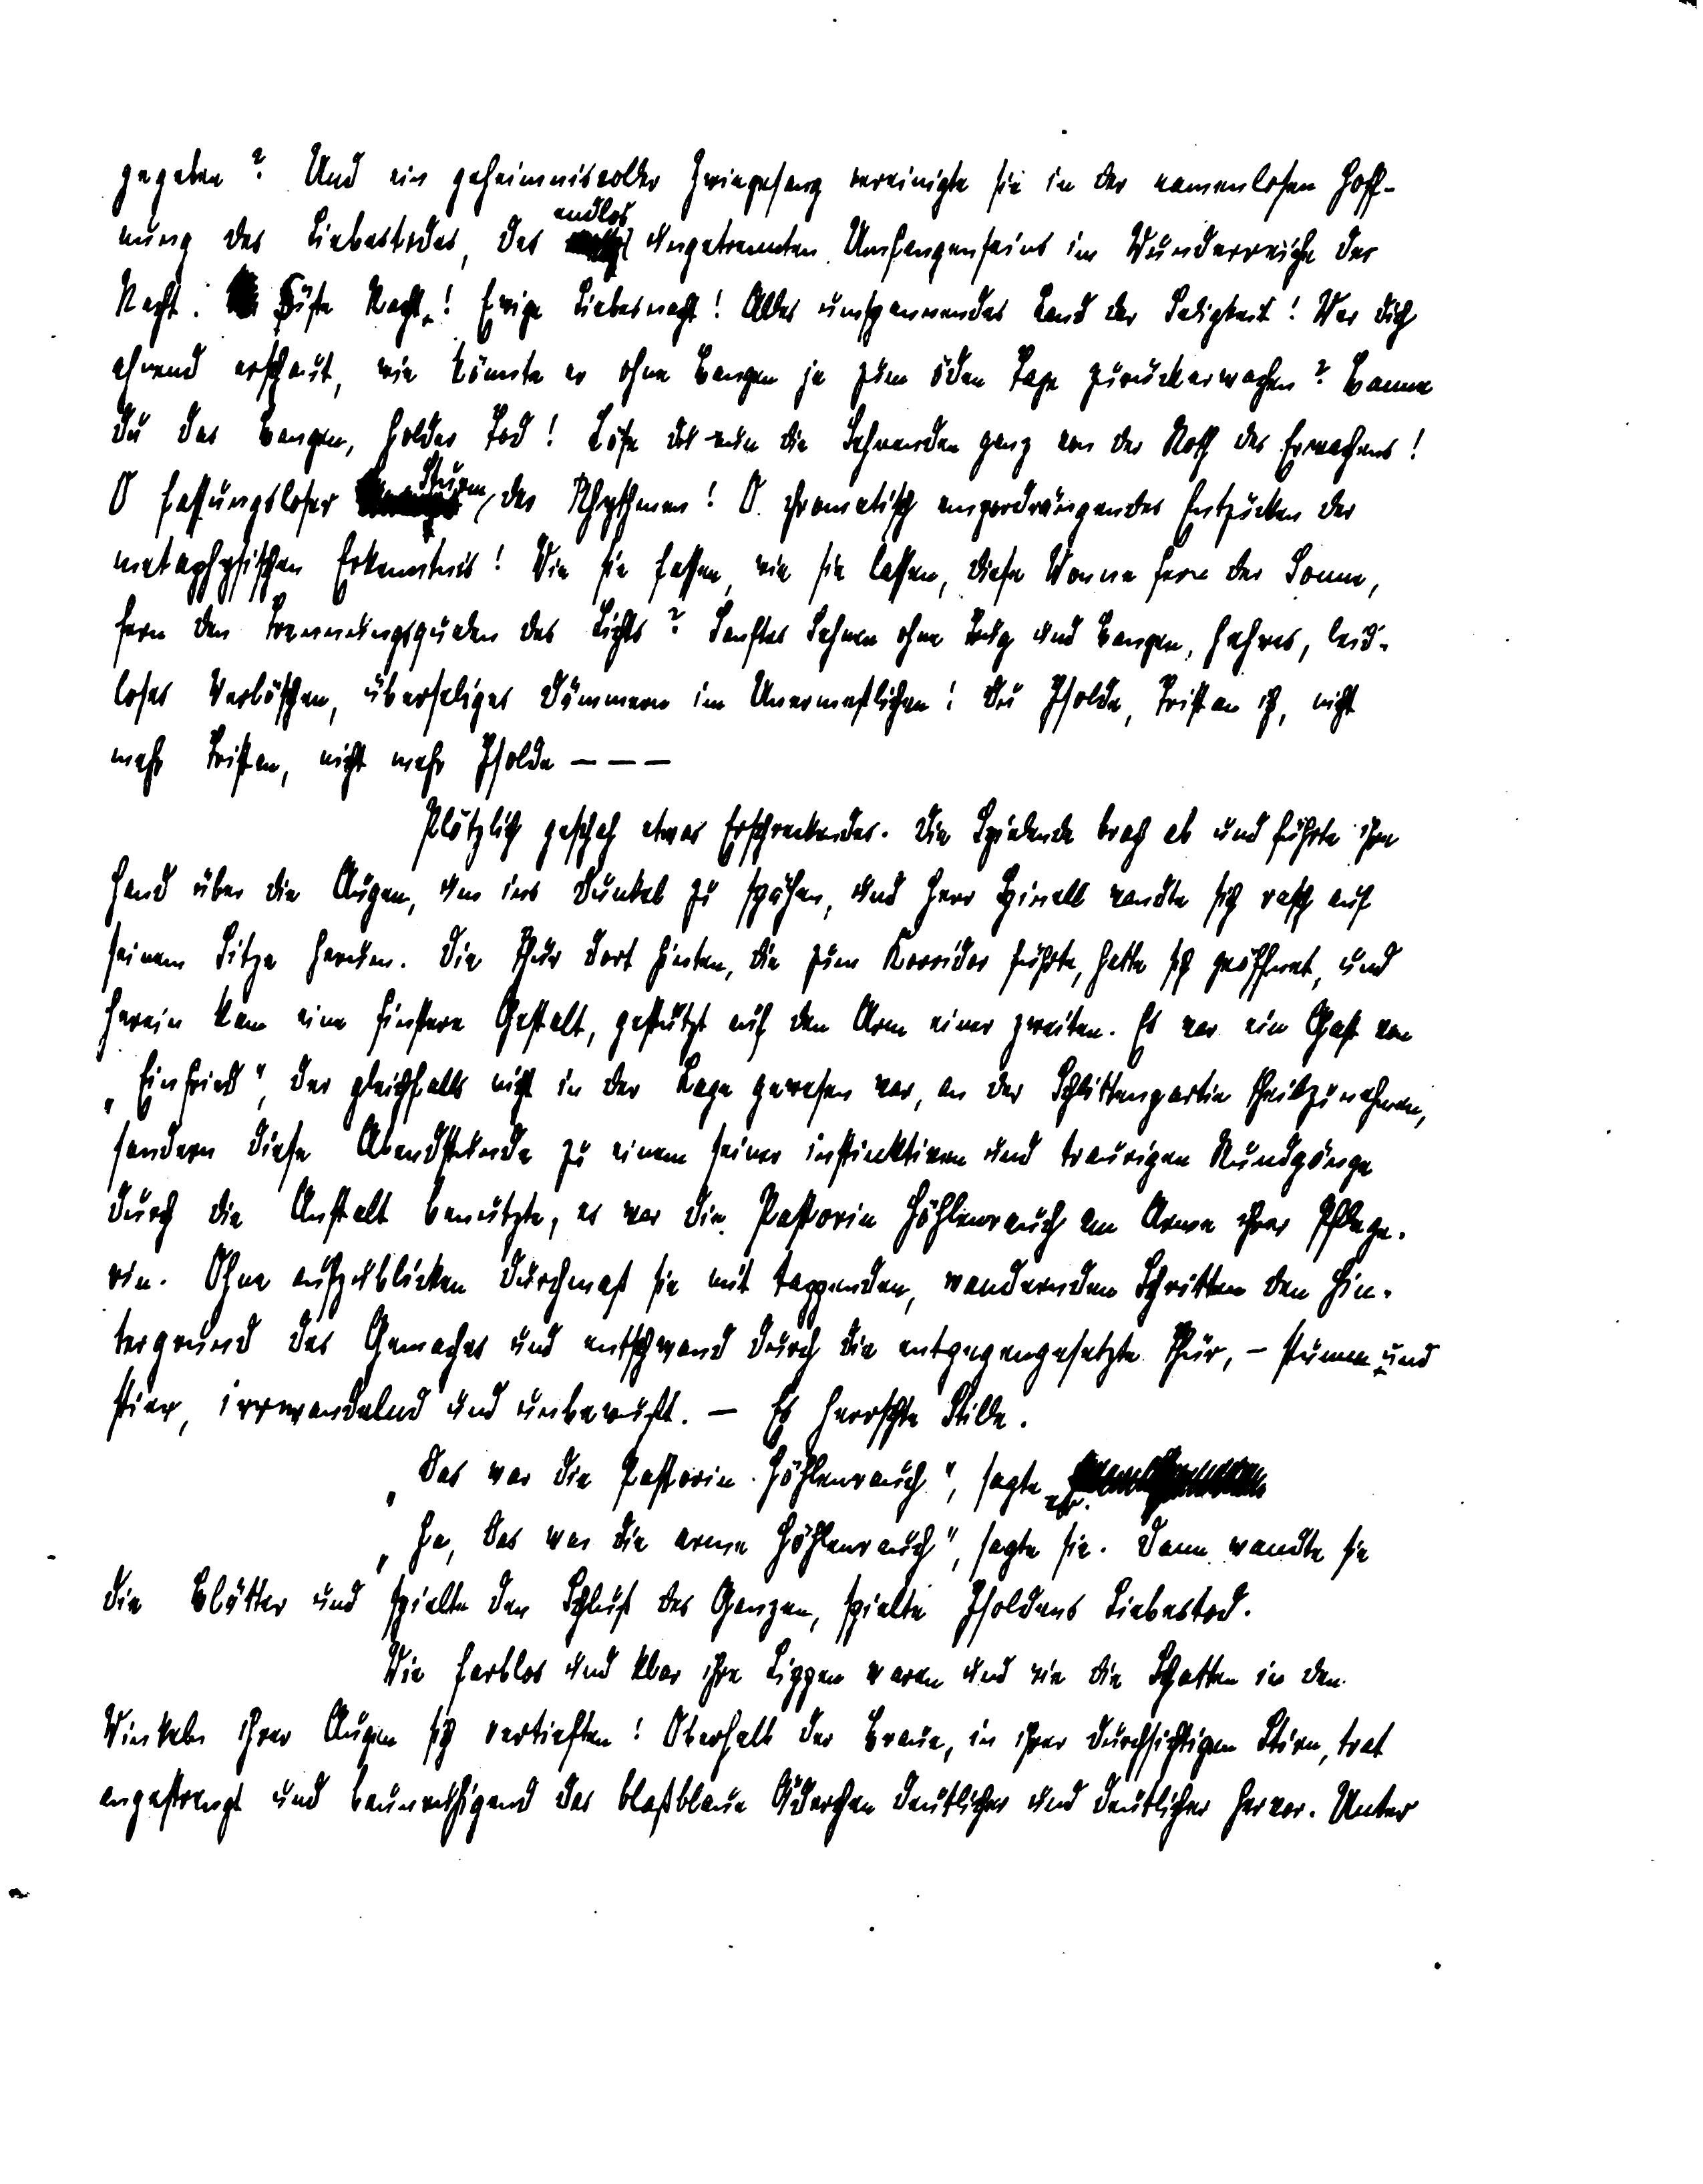 gegeben? Und ein geheimnisvoller Zwiegesang vereinigte sie in der namenlosen Hoff-
nung des Liebestodes, des endlos ungetrennten Umfangenseins im Wunderreiche der
Nacht. Süße Nacht! Ewige Liebesnacht! Alles umspannendes Land der Seligkeit! Wer dich
ahnend erschaut, wie könnte er ohne Bangen je zum öden Tage zurückerwachen? Banne
du das Bangen, holder Tod! Löse du nun die Sehnenden ganz von der Noth des Erwachens!
O fassungsloser Sturm der Rhythmen! O chromatisch empordrängendes Entzücken der
metaphysischen Erkenntnis! Wie sie fassen, wie sie lassen, diese Wonne fern der Sonne,
fern den Trennungsqualen des Lichts? Sanftes Sehnen ohne Trug und Bangen, hehres, leid-
loses Verlöschen, überseliges Dämmern im Unermeßlichen! Du Isolde, Tristan ich, nicht
mehr Tristan, nicht mehr Isolde – – –
Plötzlich geschah etwas Erschreckendes. Die Spielende brach ab und führte ihre
Hand über die Augen, um ins Dunkel zu spähen, und Herr Spinell wandte sich rasch auf
seinem Sitze herum. Die Thür dort hinten, die zum Korridor führte, hatte sich geöffnet, und
herein kam eine finstere Gestalt, gestützt auf den Arm einer zweiten. Es war ein Gast von
„Einfried", der gleichfalls nicht in der Lage gewesen war, an der Schlittenpartie theilzunehmen,
sondern diese Abendstunde zu einem seiner instinktiven und traurigen Rundgänge
durch die Anstalt benutzte, es war die Pastorin Höhlenrauch am Arme ihrer Pflege-
rin. Ohne aufzublicken durchmaß sie mit tappenden, wandernden Schritten den Hin-
tergrund des Gemaches und entschwand durch die entgegengesetzte Thür, – stumm und
stier, irrwandelnd und unbewußt. – Es herrschte Stille.
„Das war die Pastorin Höhlenrauch", sagte er.
„Ja, das war die arme Höhlenrauch", sagte sie. Dann wandte sie
die Blätter und spielte den Schluß des Ganzen, spielte Isoldens Liebestod.
Wie farblos und klar ihre Lippen waren und wie die Schatten in den
Winkeln ihrer Augen sich vertieften! Oberhalb der Braue, in ihrer durchsichtigen Stirn, trat
angestrengt und beunruhigend das blaßblaue Äderchen deutlicher und deutlicher hervor. Unter